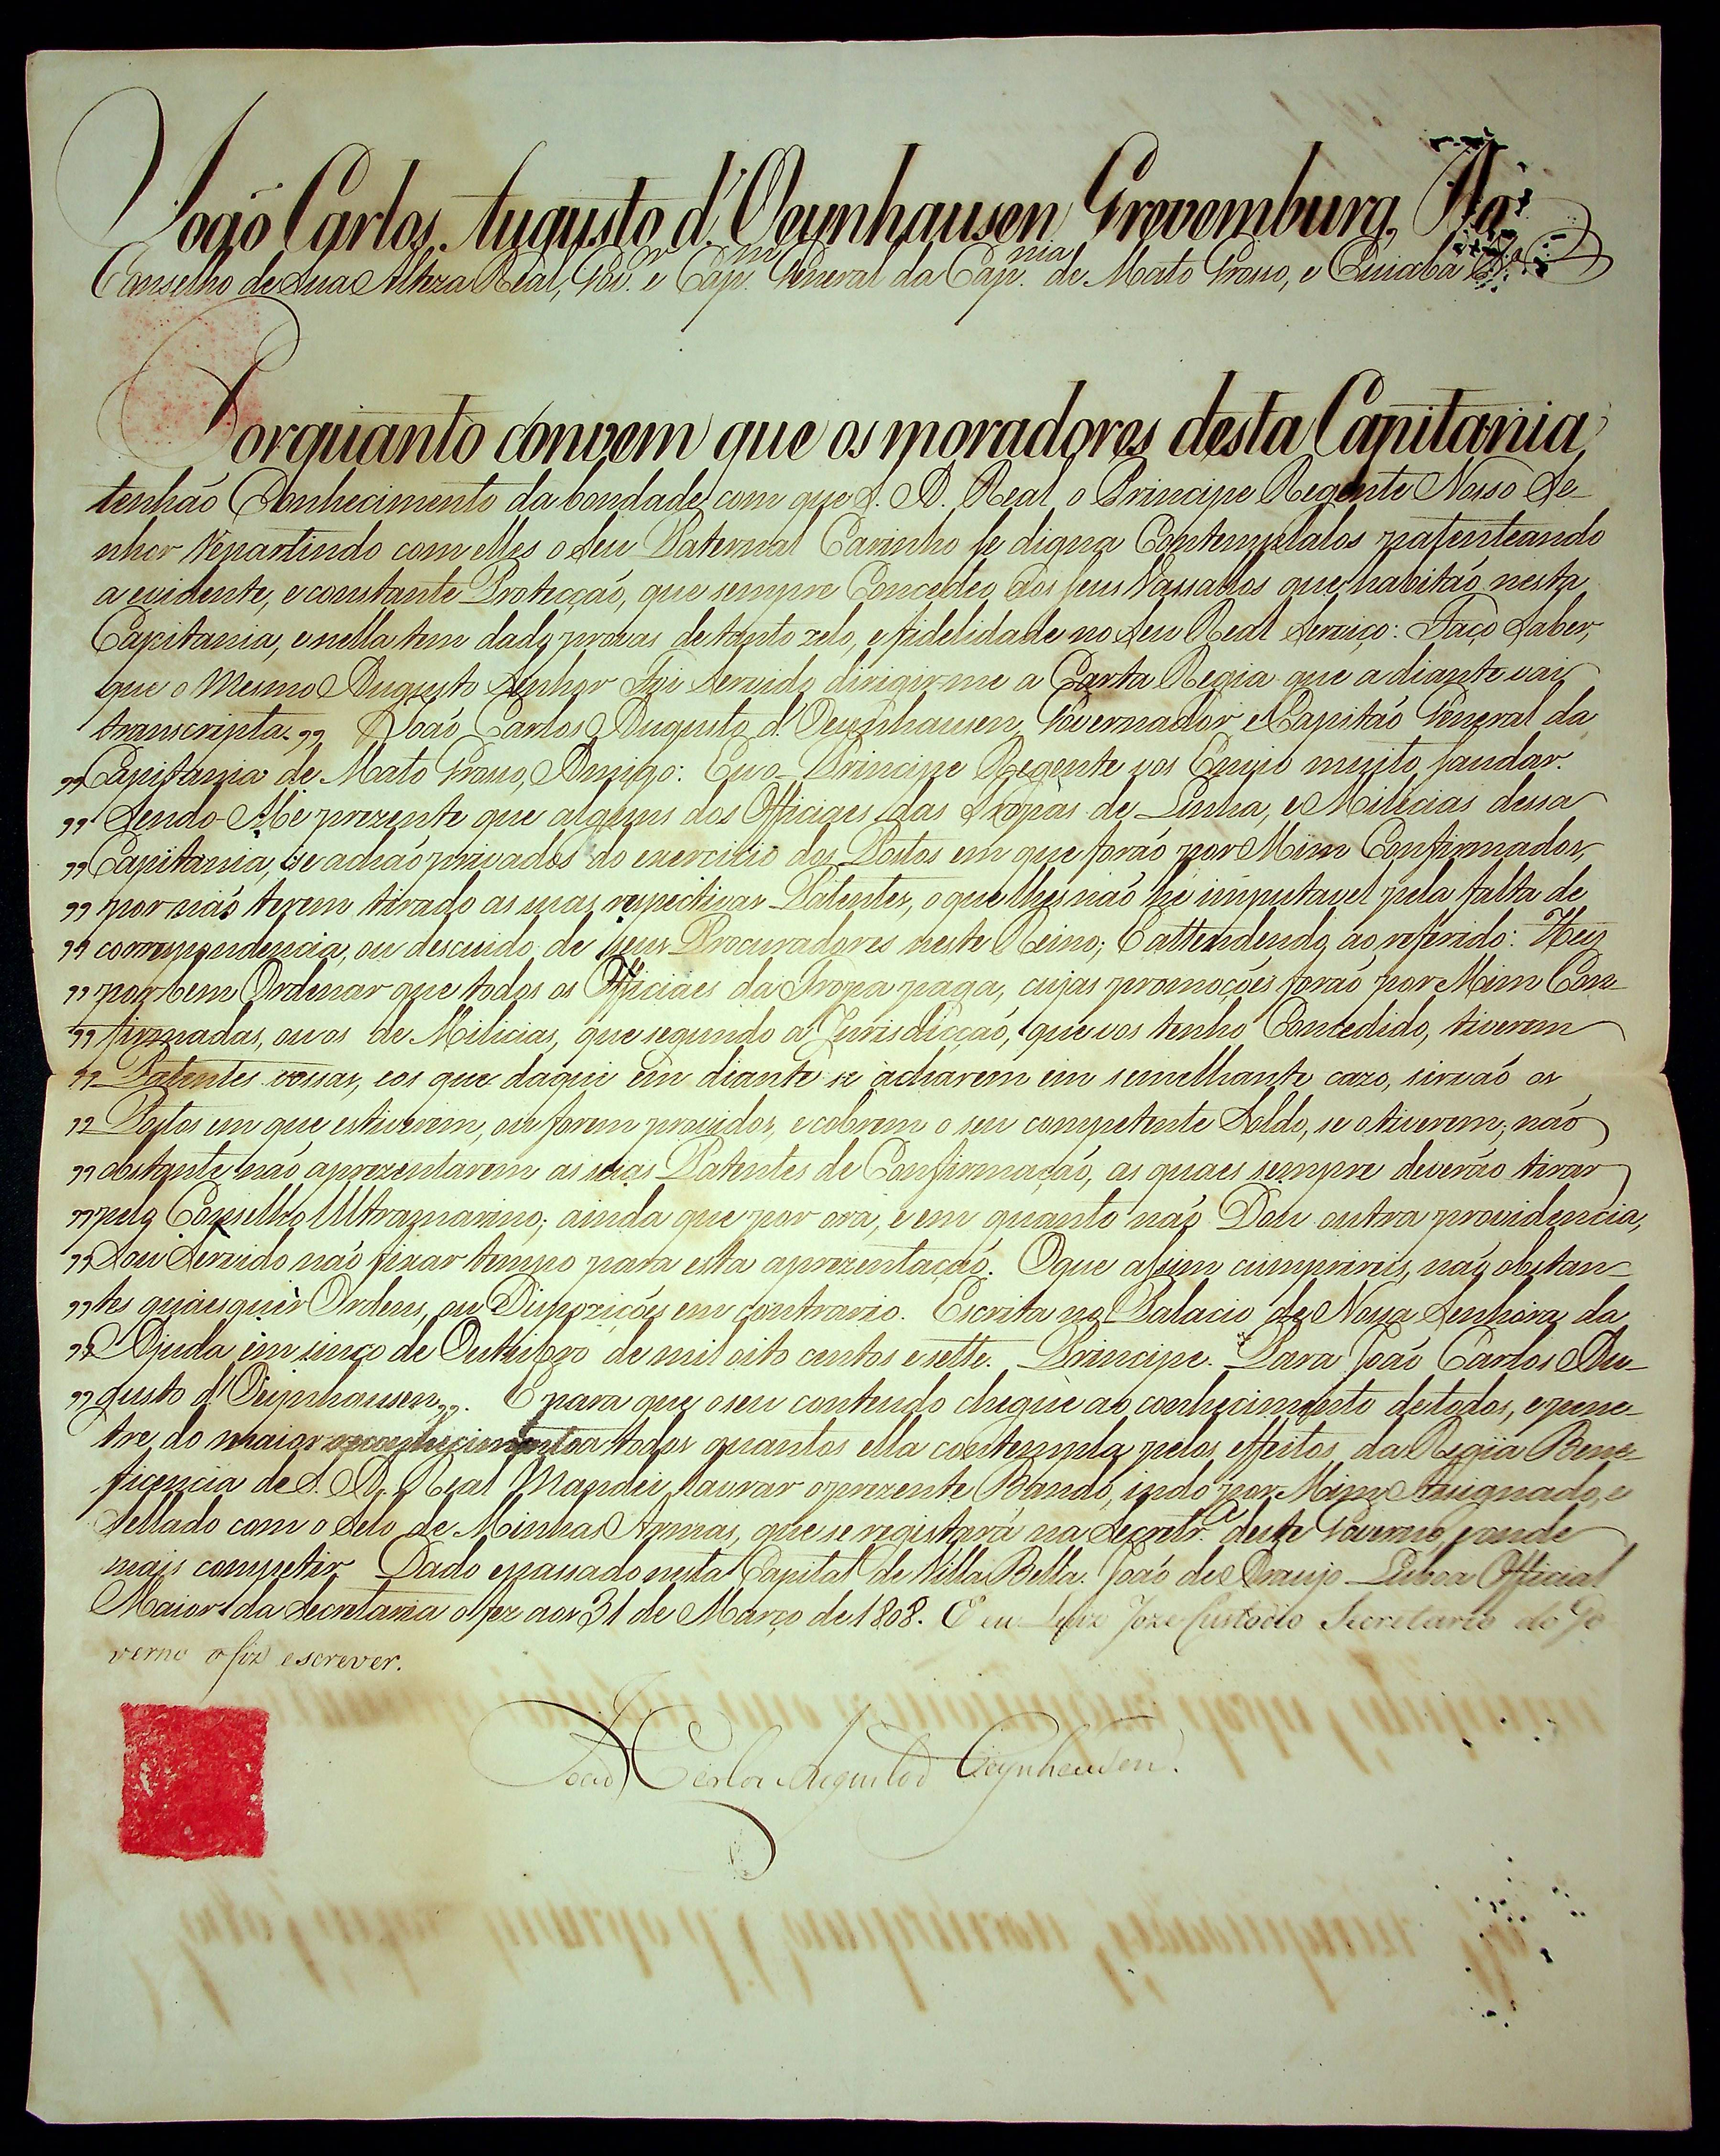 João Carlos Augusto d'Oeynhausen Grevemburg, Do
Conselho de Sua Alteza Real, Gov.or e Cap.m General da Cap.nia de Mato Grosso, e Cuiabá &.a
Porquanto convem que os moradores desta Capitania
tenhão Conhecimento da bondade com que S. A. Real o Principe Regente Nosso Se-
nhor repartindo com elles o Seu Paternal Carinho se digna Contemplalos patenteando
a evidente, e constante Protecçaõ, que sempre Concedeo aos seus Vassallos que habitaõ nesta
Capitania, e nella tem dado provas de tanto zelo, e fidelidade no Seu Real Serviço: Faço Saber,
que o Mesmo Augusto Senhor Foi Servido dirigirme a Carta Regia que a diante vai
transcripta. ,, João Carlos Augusto d'Oeynhausen, Governador e Capitão General da
,, Capitania de Mato Grosso, Amigo: Eu o Principe Regente vos Envio muito saudar.
,, Sendo-Me prezente que alguns dos Officiaes das Tropas de Linha, e Milicias dessa
,, Capitania, se achaõ privados do exercicio dos Postos em que foraõ por Mim Confirmados,
,, por naõ terem tirado as suas respectivas Patentes, o que lhes naõ he imputavel pela falta de
,, correspondencia, ou descuido de seus Procuradores neste Reino; E attendendo ao referido: Hei
,, por bem Ordenar que todos os Officiaes da Tropa paga, cujas promoções foraõ por Mim Con-
,, firmadas, ou os de Milicias, que segundo a Jurisdicçaõ, que vos tenho Concedido, tiverem
,, Patentes vossas, e os que daqui em diante se acharem em semelhante cazo, sirvaõ os
,, Postos em que estiverem, ou forem providos, e cobrem o seu competente Soldo, se o tiverem; naõ
,, obstante naõ aprezentarem as suas Patentes de Confirmaçaõ, as quaes sempre deverão tirar
,, pelo Conselho Ultramarino; ainda que por ora, e em quanto naõ Dou outra providencia,
,, Sou Servido naõ fixar tempo para esta aprezentaçaõ. O que assim cumprireis, naõ obstan-
,, tes quaesquer Ordens, ou Dispozições em contrario. Escrita no Palacio de Nossa Senhora da
,, Ajuda em sinco de Outubro de mil oito centos e sette. Principe. Para João Carlos Au-
,, gusto d'Oeynhausen ,,. E para que o seu contendo chegue ao conhecimento de todos, e pene-
tre do maior reconhecimento a todos quantos ella contempla pelos effeitos da Regia Bene-
ficencia de S. A. Real Mandei lavrar o prezente Bando, indo por Mim Assignado, e
Sellado com o Selo de Minhas Armas, que se registará na Secretr.a deste Governo, e onde
mais competir. Dado e passado nesta Capital de Villa Bella. João de Araujo Lisboa Official
Maior da Secretaria o fez aos 31 de Março de 1808. E eu Luiz Joze Custodio Secretario do Go
verno o fiz escrever.
João Carlos Augusto d'Oeynhausen.